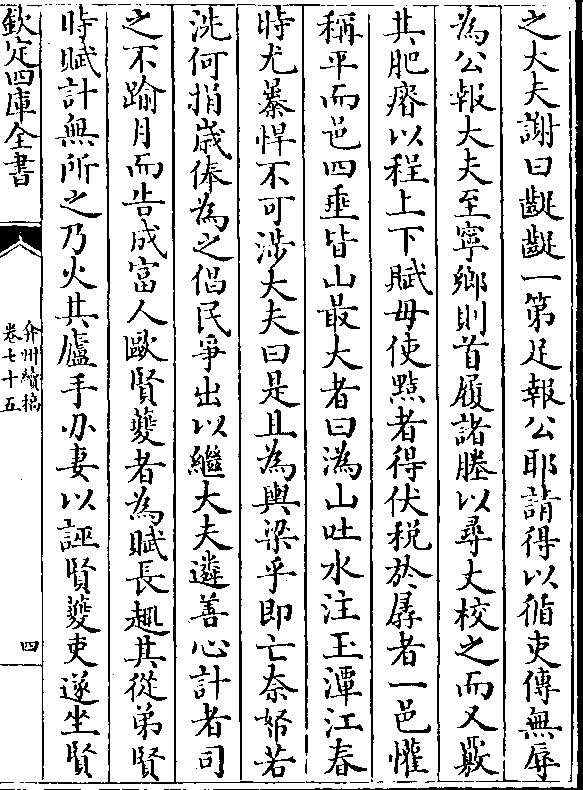 之大夫謝曰齪齪一第足報公耶請得以循吏傳無辱
為公報大夫至寧鄉則首履諸塍以尋丈校之而又覈
其肥瘠以程上下賦毋使黠者得伏稅於孱者一邑懽
稱平而邑四垂皆山最大者曰溈山吐水注玉潭江春
時尤暴悍不可涉大夫曰是且為輿梁乎即亡奈帑若
洗何捐歲俸為之倡民爭出以繼大夫遴善心計者司
之不踰月而告成富人歐賢夔者為賦長趣其從弟賢
時賦計無所之乃火其廬手刅妻以誣賢夔吏遂坐賢
欽定四庫全書
弇州續稿
卷七十五
四